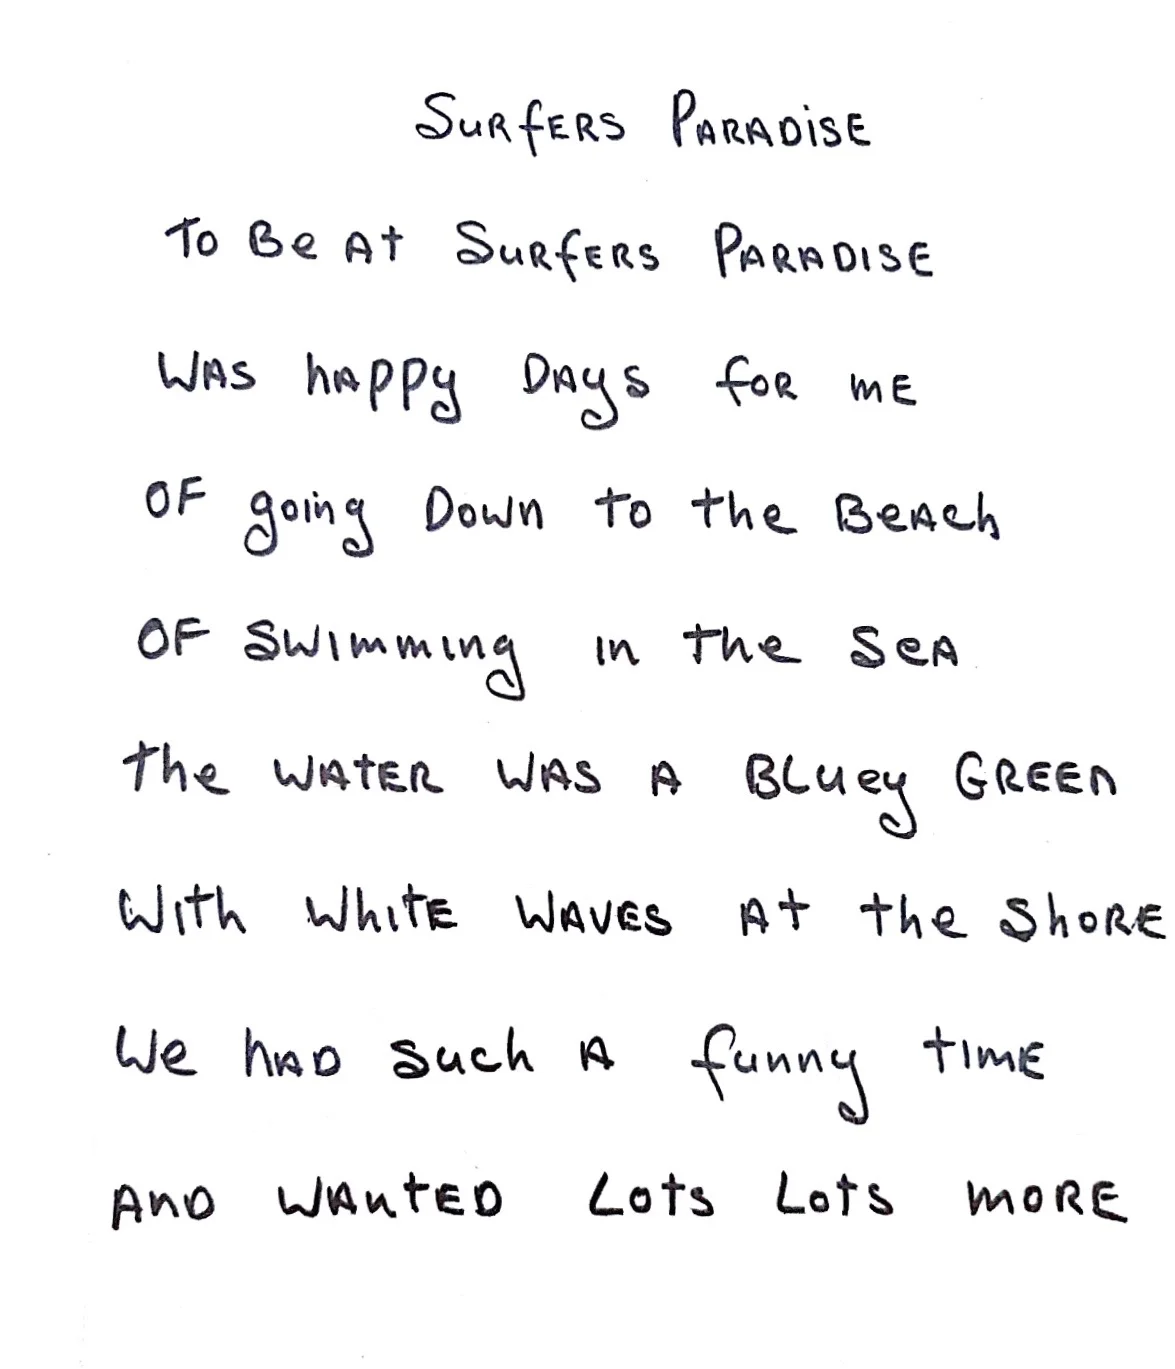 Surfers Paradise
To Be At Surfers Paradise
Was happy Days for me
Of going Down to the Beach
Of swimming in the sea
the water was a Bluey Green
With white waves at the shore
We had such a funny time
And wanted Lots Lots more